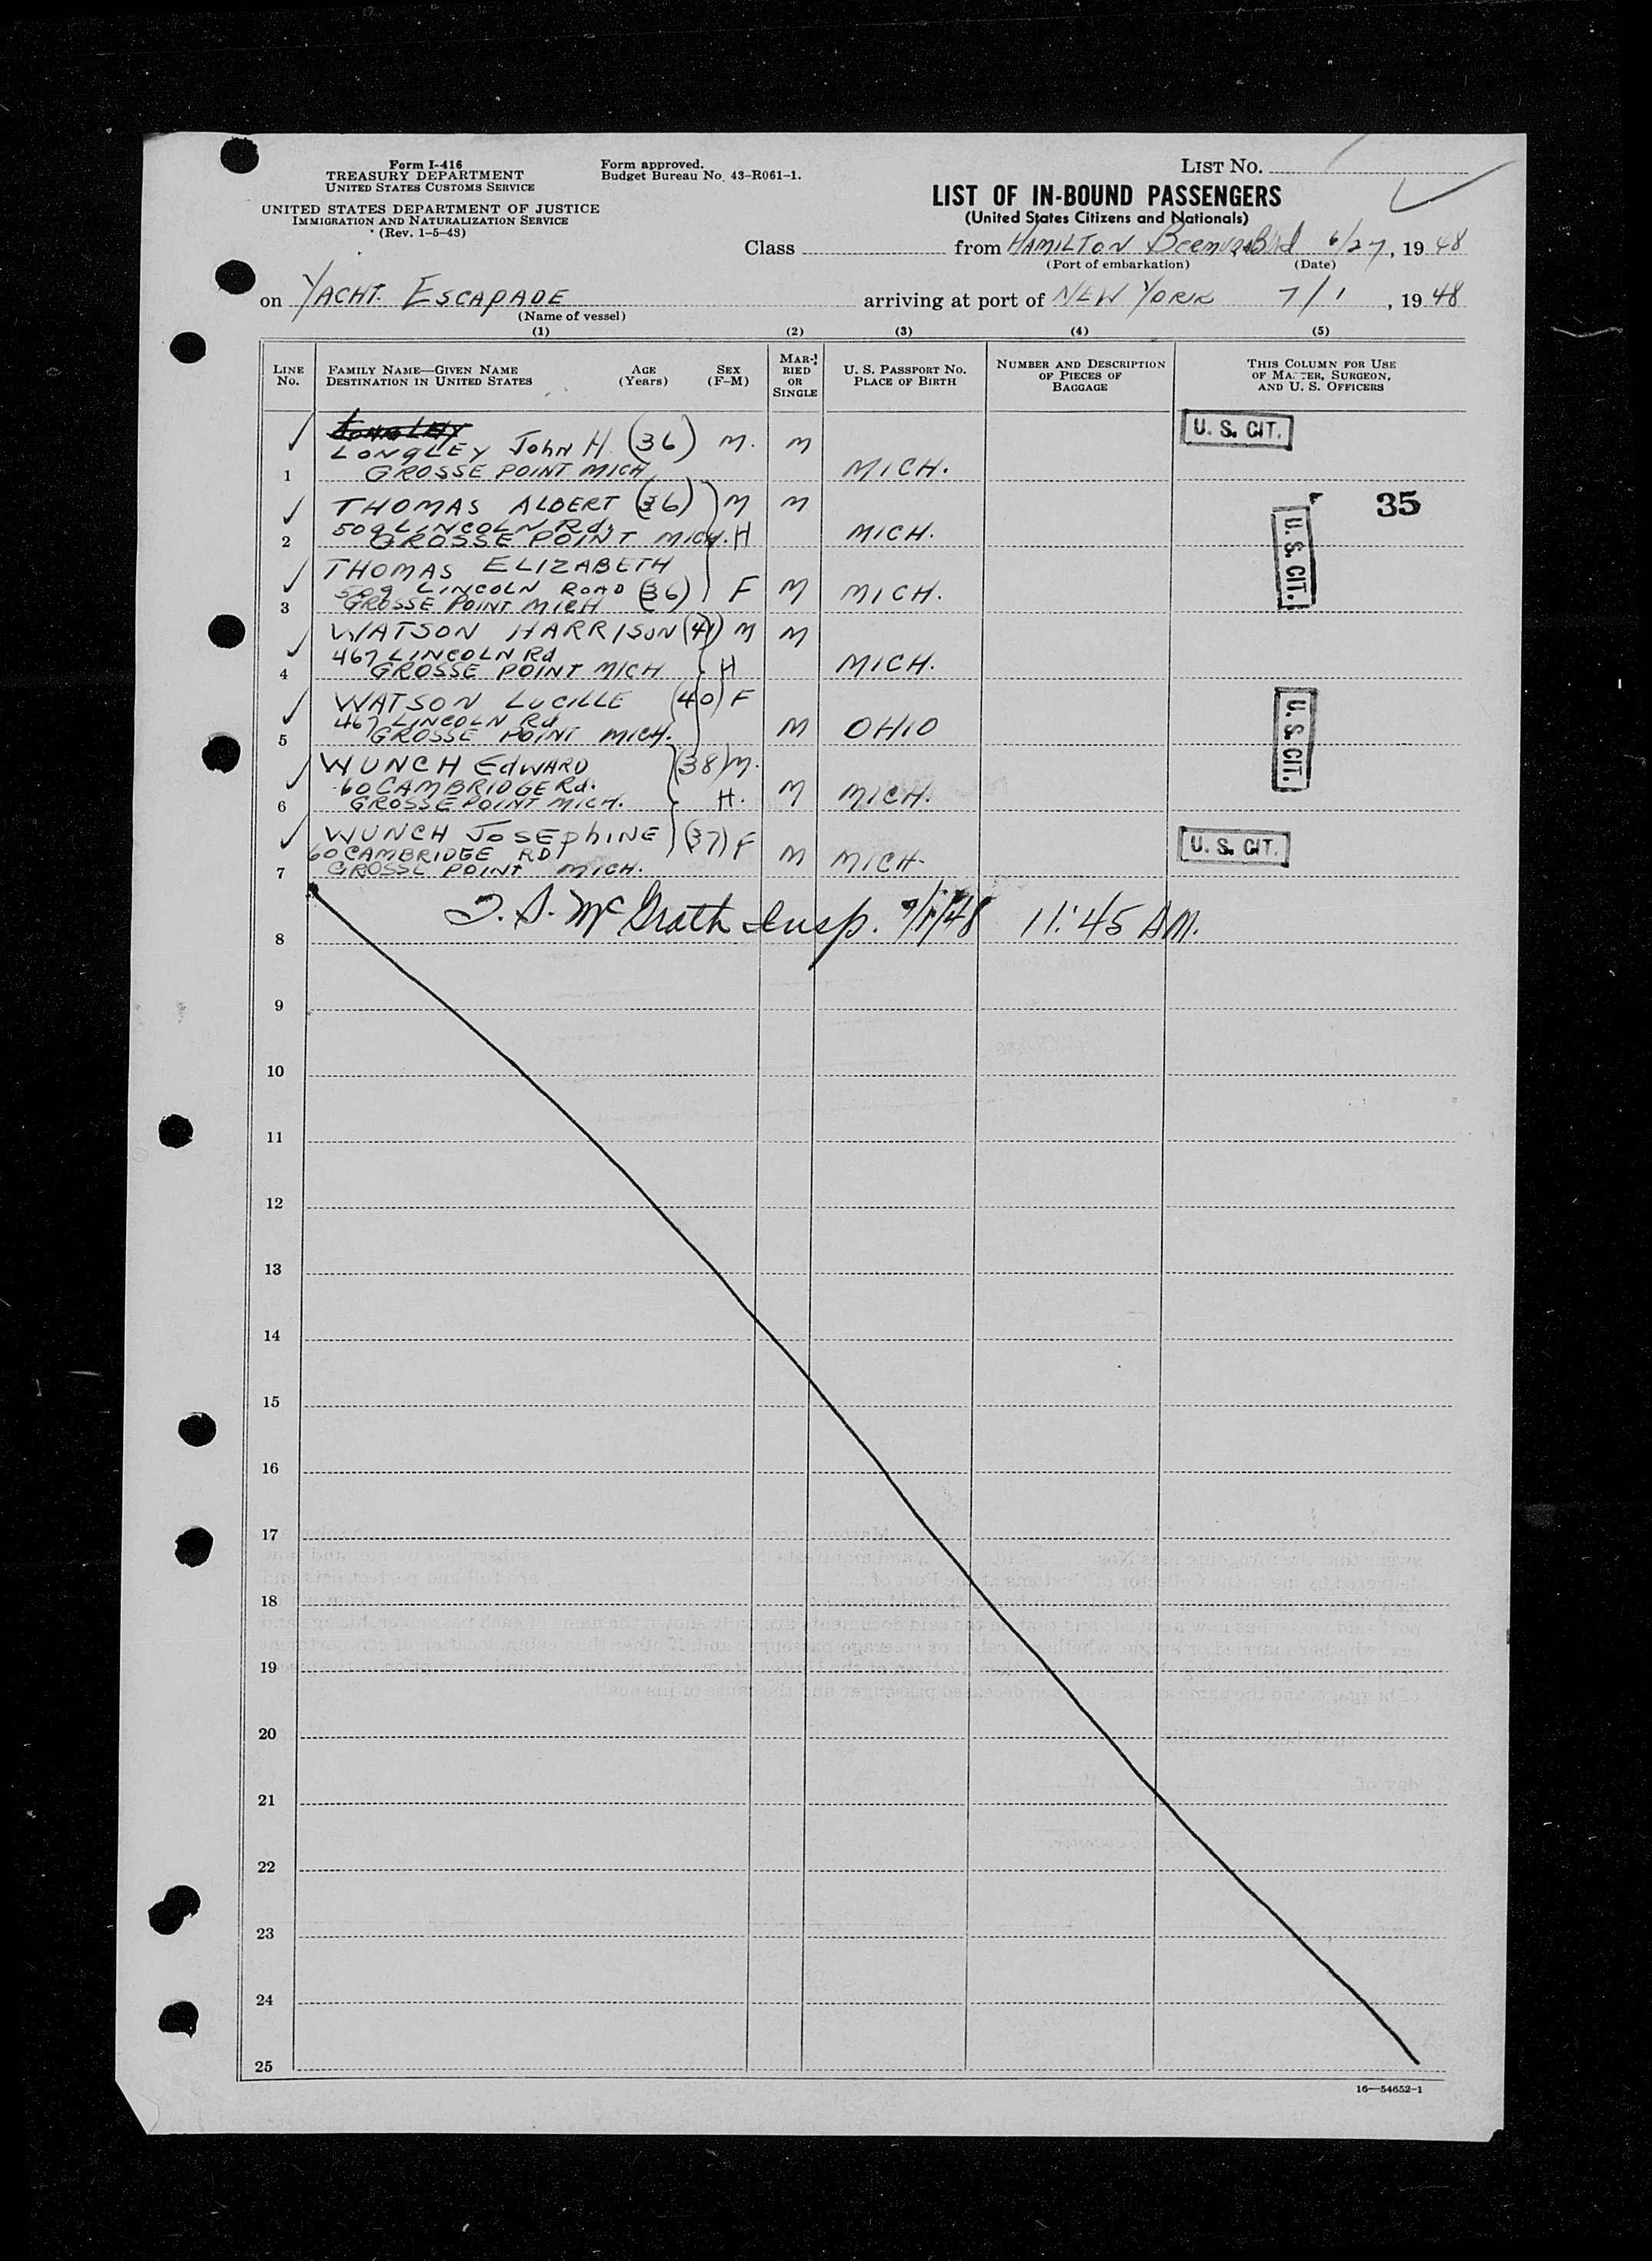 Form I-416
TREASURY DEPARTMENT
UNITED STATES CUSTOMS SERVICE
UNITED STATES DEPARTMENT OF JUSTICE
IMMIGRATION AND NATURALIZATION SERVICE
(Rev. 1-5-43)
Form approved.
Budget Bureau No. 43-R061-1.
LIST NO.
LIST OF IN-BOUND PASSENGERS
(United States Citizens and Nationals)
Class from HAMILTON BERMUDA 6/27, 1948
(Port of embarkation) (Date)
on YACHT ESCAPADE arriving at port of NEW YORK 7/1, 1948
(Name of vessel)
(1) (2) (3) (4) (5)
LINE NO.
FAMILY NAME—GIVEN NAME
DESTINATION IN UNITED STATES
AGE (Years)
SEX (F-M)
MARRIED OR SINGLE
U. S. PASSPORT NO.
PLACE OF BIRTH
NUMBER AND DESCRIPTION OF PIECES OF BAGGAGE
THIS COLUMN FOR USE OF MASTER, SURGEON, AND U. S. OFFICERS
LONGLEY
LONGLEY JOHN H. (36) M. M U. S. CIT.
1 GROSSE POINT MICH MICH.
THOMAS ALBERT (36) M M 35
509 LINCOLN Rd.
2 GROSSE POINT MICH. H MICH. U. S. CIT.
THOMAS ELIZABETH
509 LINCOLN ROAD (36) F M MICH.
3 GROSSE POINT MICH
WATSON HARRISON (41) M M
467 LINCOLN Rd
4 GROSSE POINT MICH H MICH.
WATSON LUCILLE (40) F
467 LINCOLN Rd
5 GROSSE POINT MICH. M OHIO U. S. CIT.
WUNCH EDWARD (38) M.
60 CAMBRIDGE Rd.
6 GROSSE POINT MICH. H. M MICH.
WUNCH JOSEPHINE (37) F
60 CAMBRIDGE RD M MICH. U. S. CIT.
7 GROSSE POINT MICH.
8 McGrath Insp. 7/1/48 11:45 AM.
9
10
11
12
13
14
15
16
17
18
19
20
21
22
23
24
25
16—54652-1